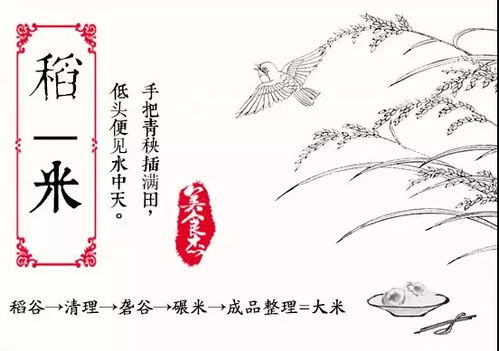 稻一米
手把青秧插满田，
低头便见水中天。
美食
稻谷→清理→砻谷→碾米→成品整理=大米